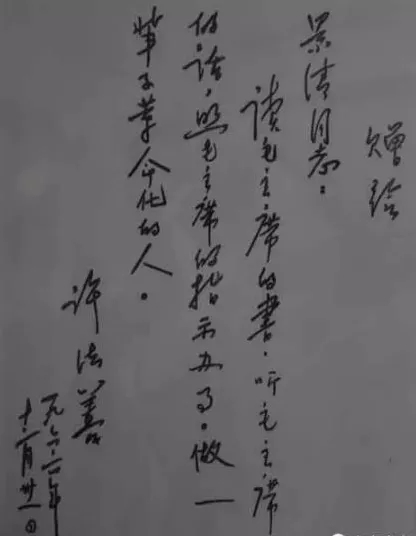 赠给
景清同志:
读毛主席的書,听毛主席
的话,照毛主席的指示办事。做一
辈子革命化的人。
许法善
一九六六年
十二月卅一日